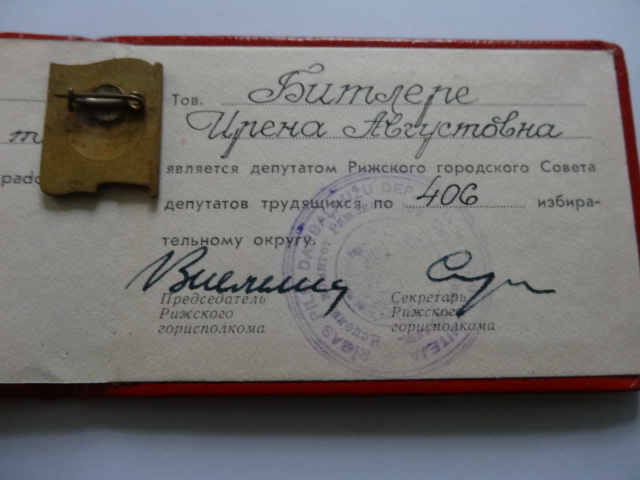 Тов. Битлере
Ирена Августовна
является депутатом Рижского городского Совета
депутатов трудящихся по 406 избира-
тельному округу.
Председатель
Рижского
горисполкома
Секретарь
Рижского
горисполкома
RĪGAS PILS. DARBAĻAUŽU DEP